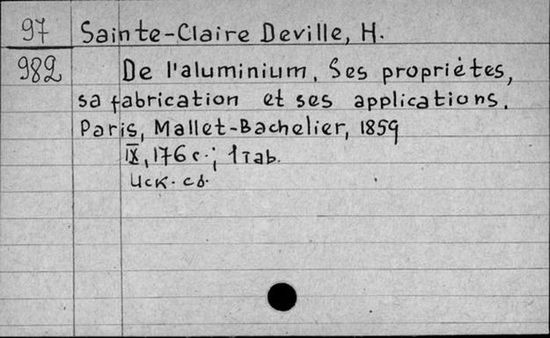 97 Sainte-Claire Deville, H.
982 De l'aluminium. Ses propriétes,
sa fabrication et ses applications.
Paris, Mallet-Bachelier, 1859
IX, 176 с.; 1 таб.
Иск. сд.